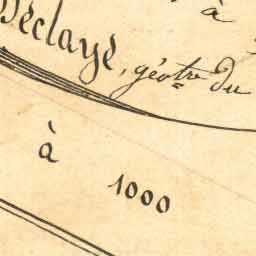 à
Déclayé, géotre du
à 1000